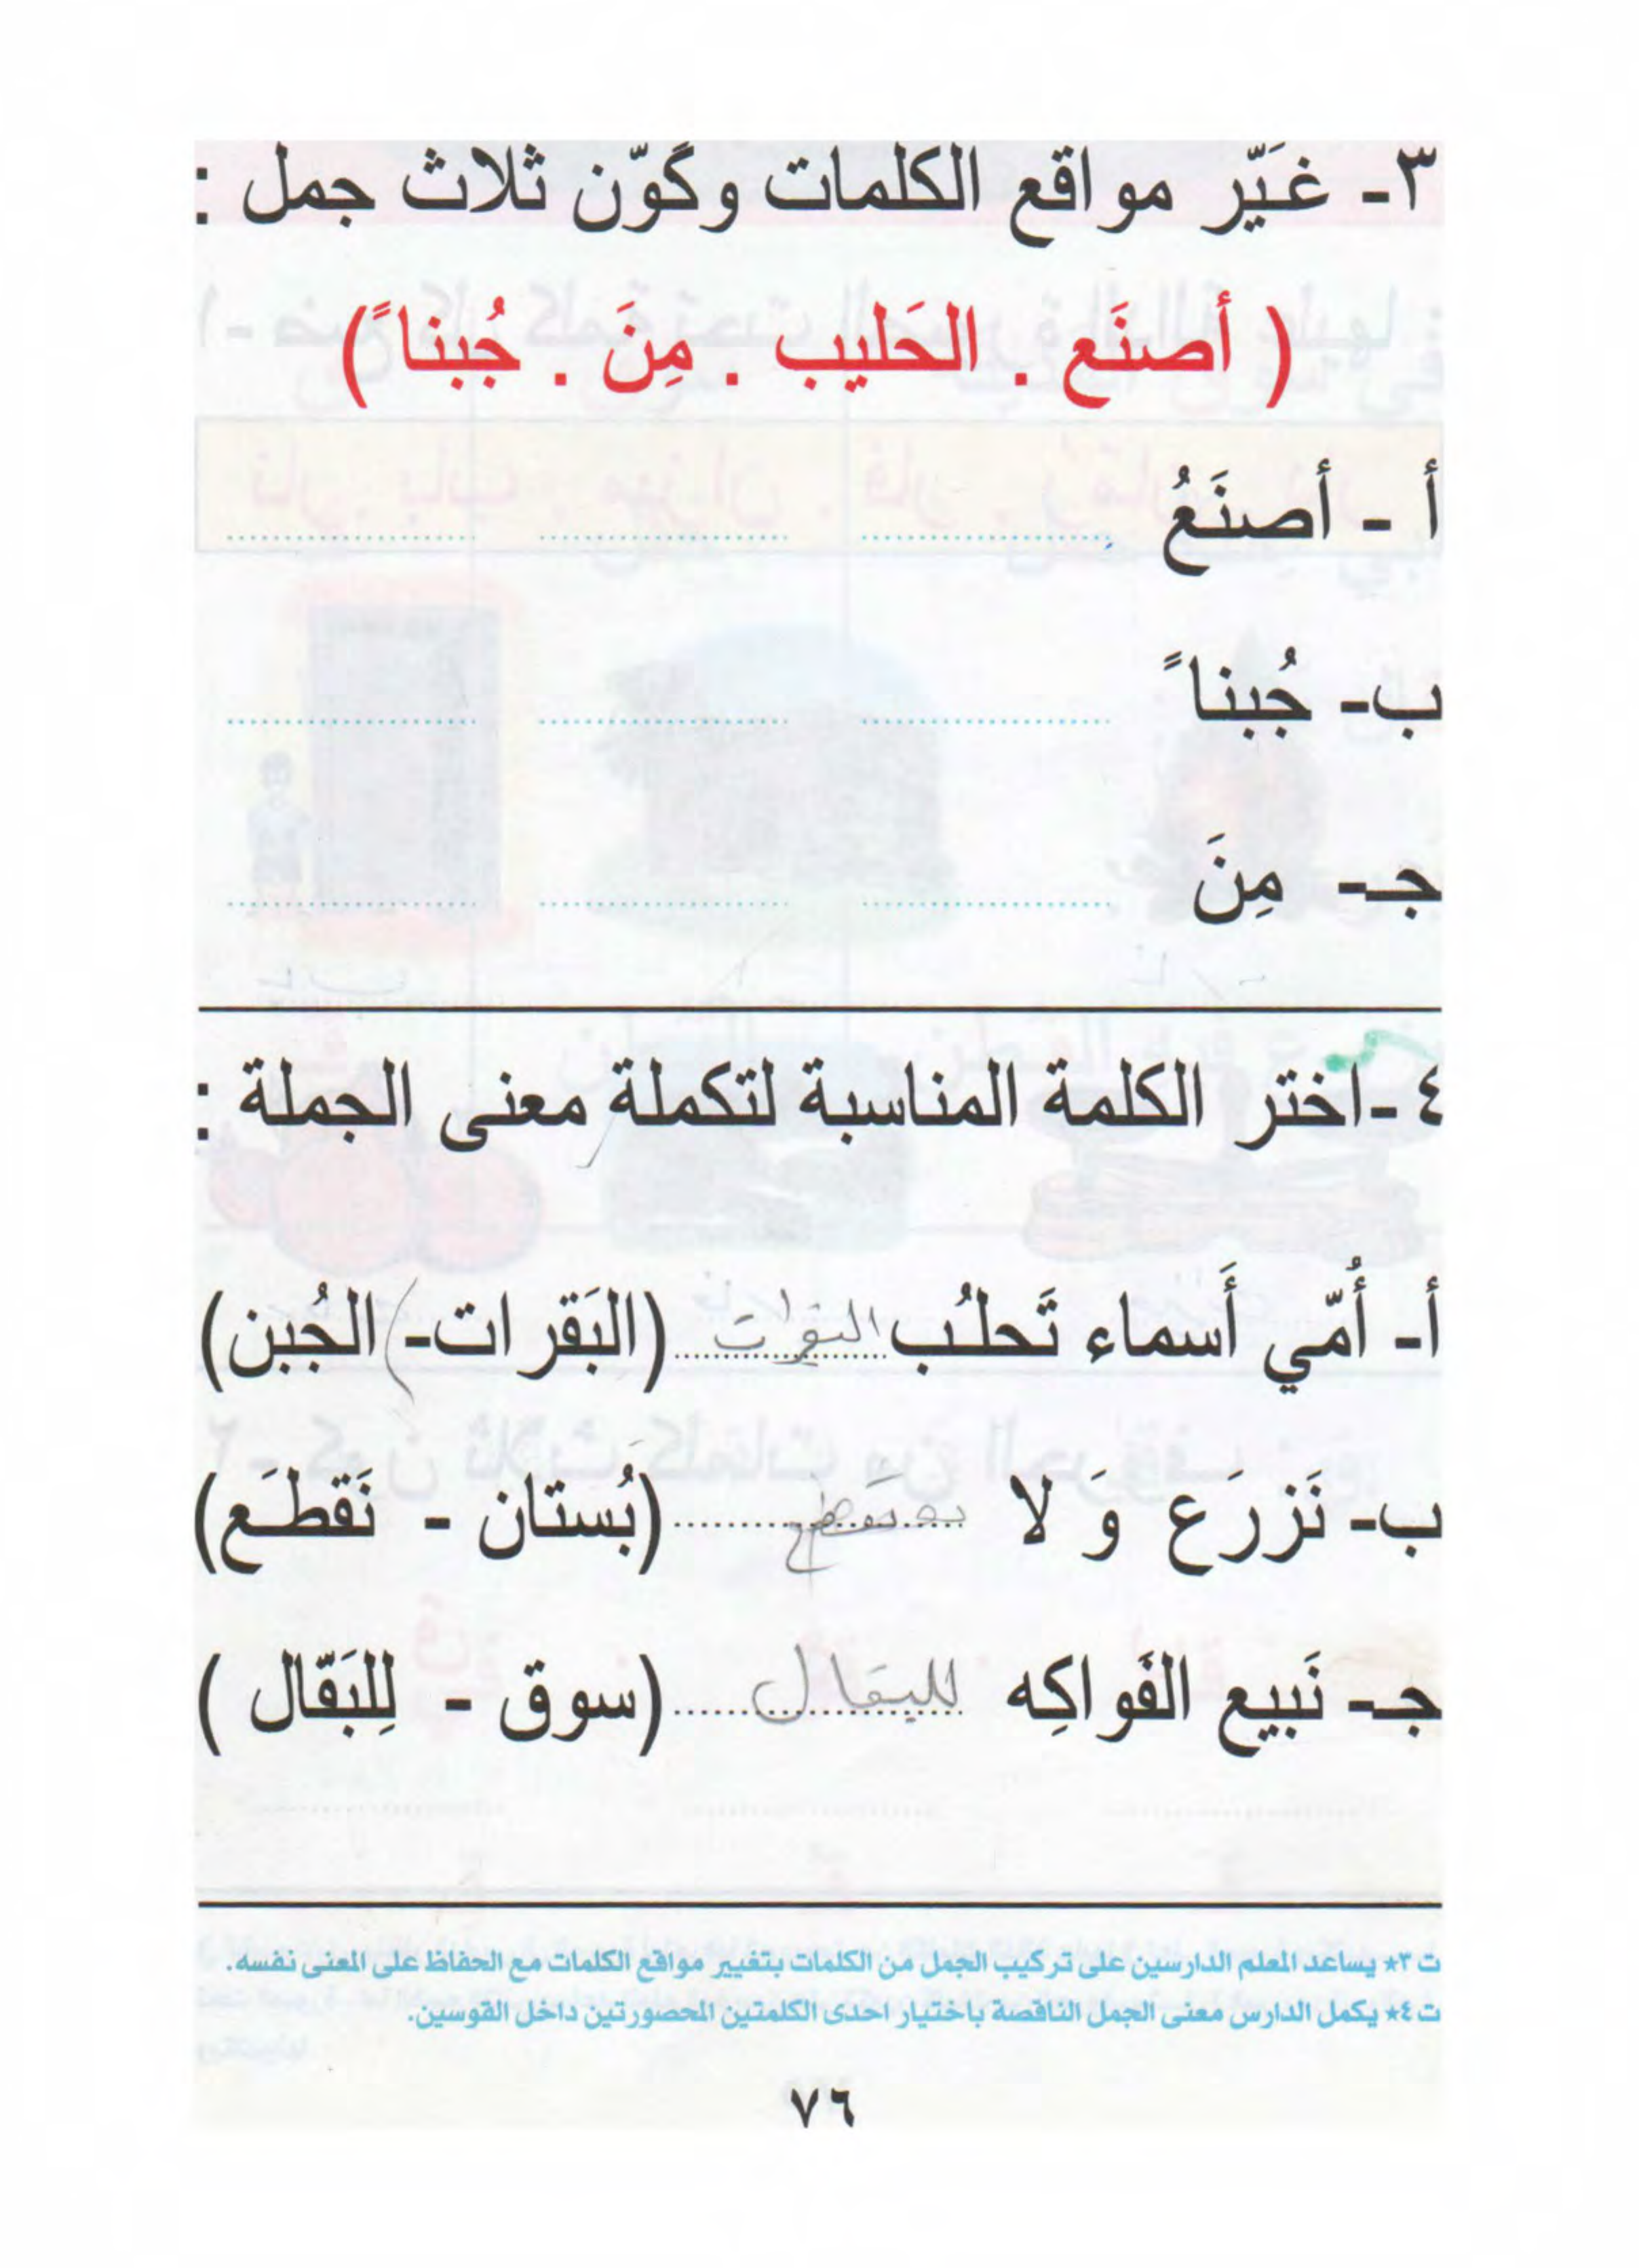 ٣- غَيّر مواقع الكلمات وكَوّن ثلاث جمل :
( أصنَع . الحَليب . مِنَ . جُبناً )
أ - أصنَعُ
ب- جُبناً
جـ- مِنَ
٤-اختر الكلمة المناسبة لتكملة معنى الجملة :
أ- أُمّي أَسماء تَحلُب البقرات (البَقرات- الجُبن)
ب- نَزرَع وَ لا نقطع (بُستان - نَقطَع)
جـ- نَبيع الفَواكِه للبقال (سوق - لِلبَقّال )
ت ٣* يساعد المعلم الدارسين على تركيب الجمل من الكلمات بتغيير مواقع الكلمات مع الحفاظ على المعنى نفسه.
ت ٤* يكمل الدارس معنى الجمل الناقصة باختيار احدى الكلمتين المحصورتين داخل القوسين.
٧٦